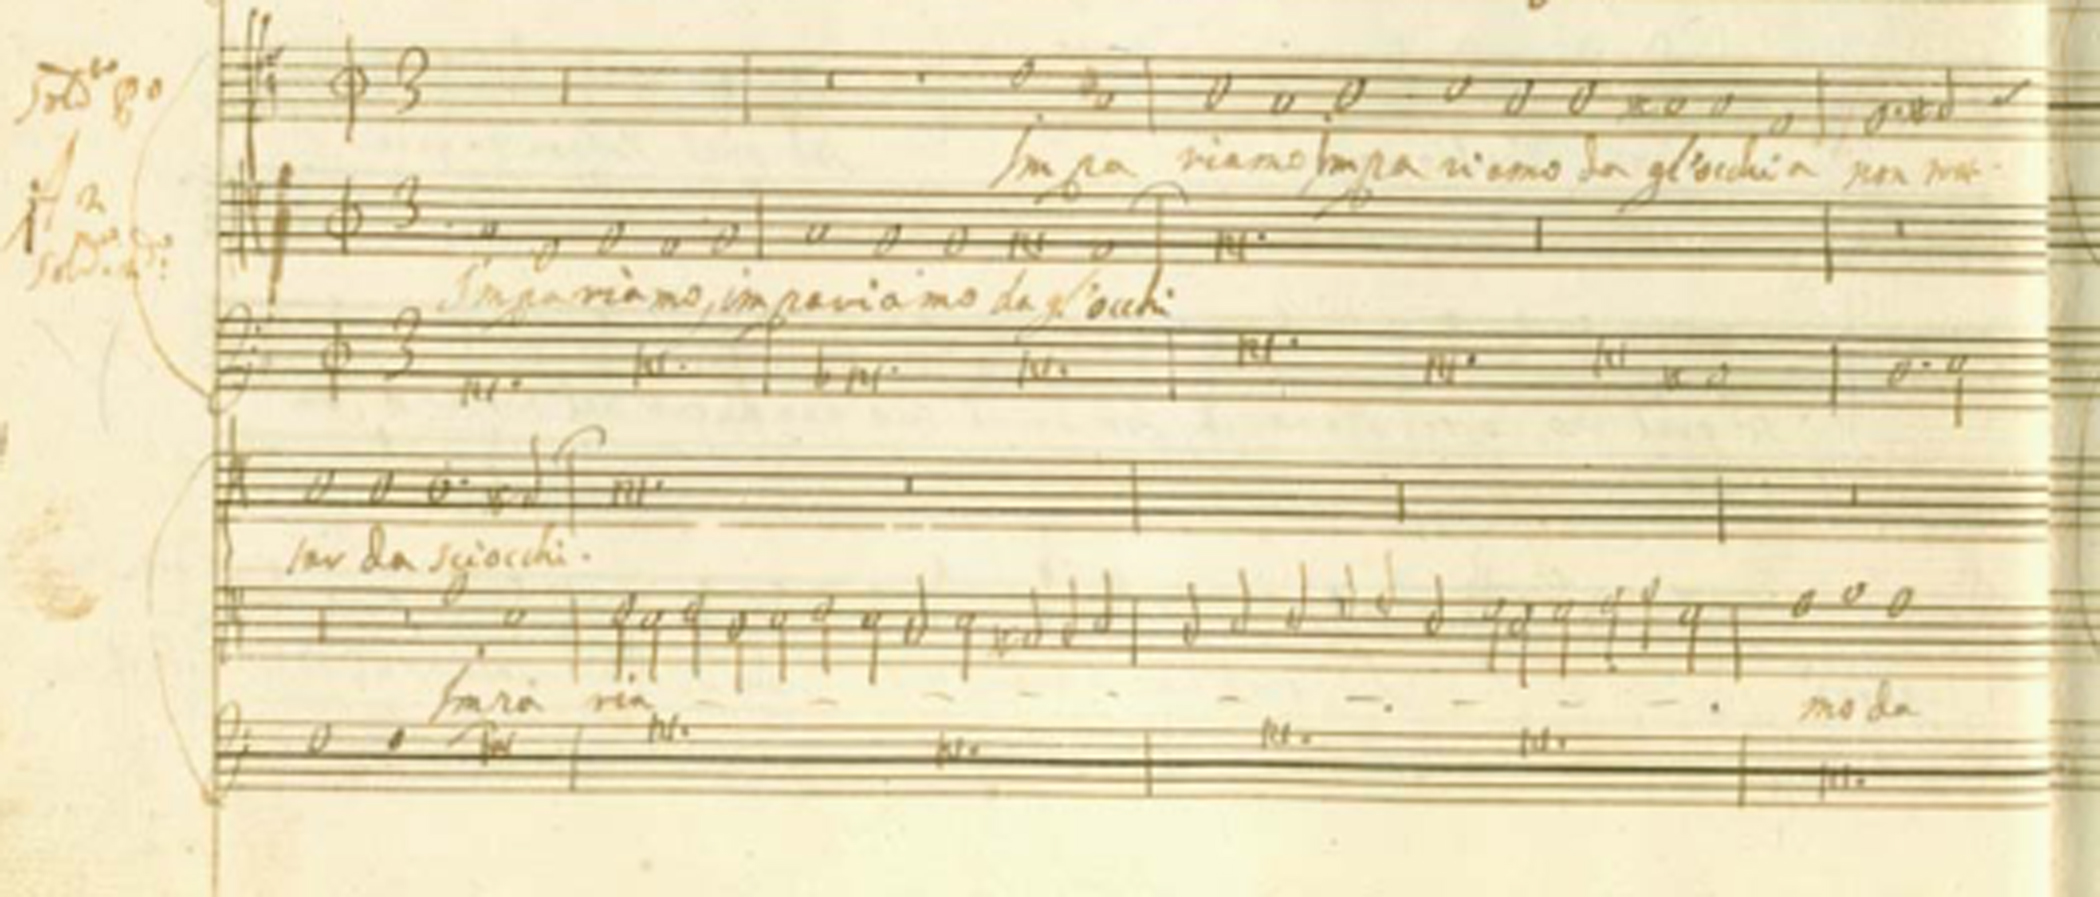 Sold.º p.º
Impa riamo Impa riamo da gl'occhi a non
Impariamo, impariamo da gl'occhi
tar da sciocchi.
Impa ria mo da